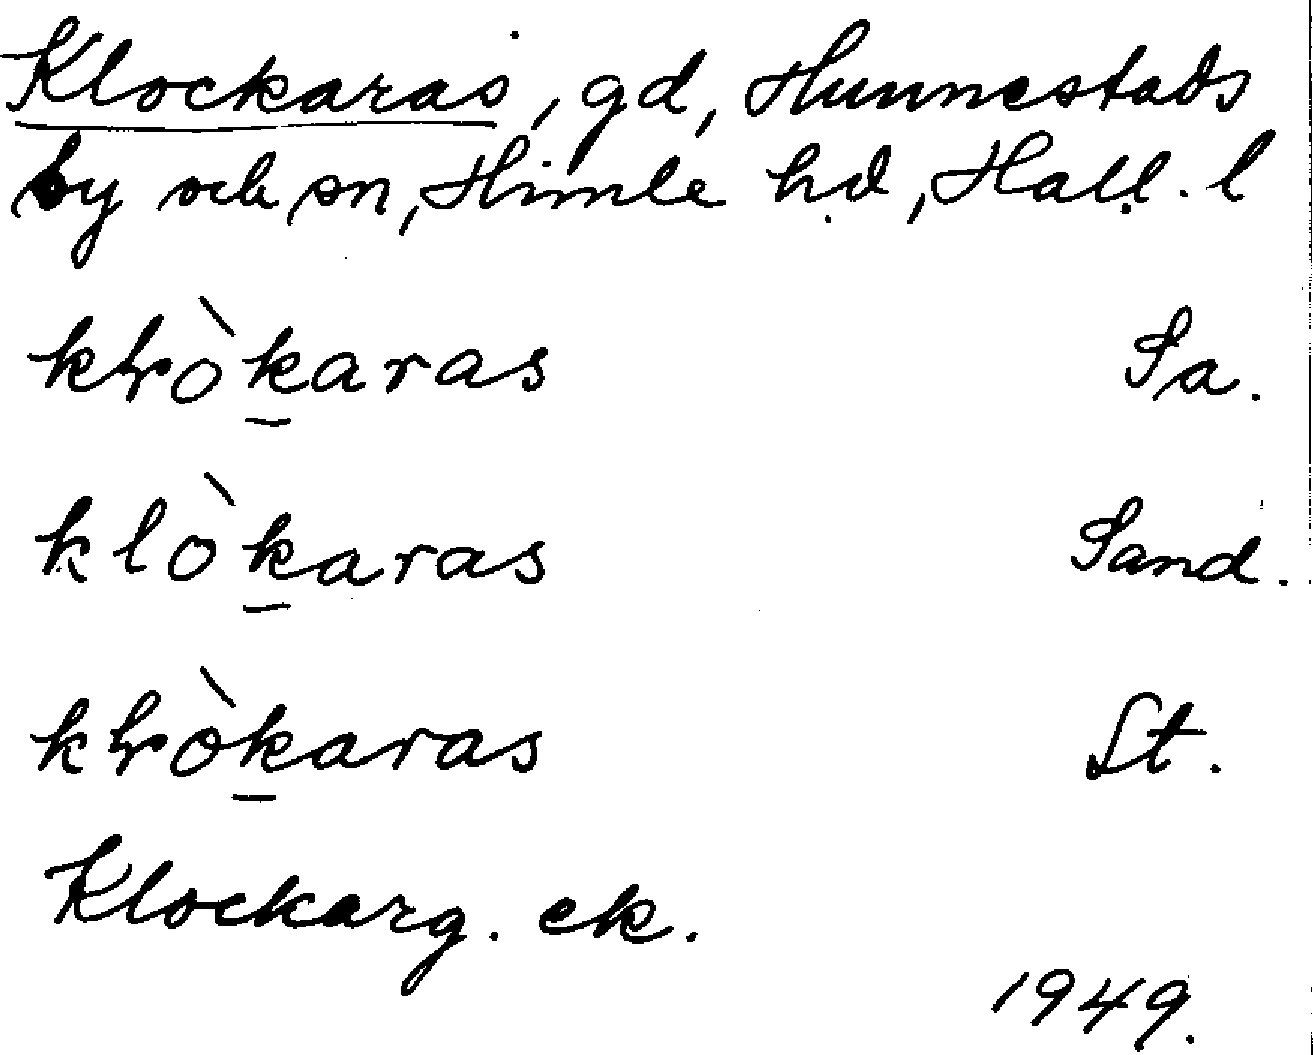 Klockaras, gd, Hunnestads
by och sn, Himle hd, Hall. l
kłòk̠aras Sa.
klòk̠aras Sand.
kłòk̠aras St.
Klockarg. ek.
1949.